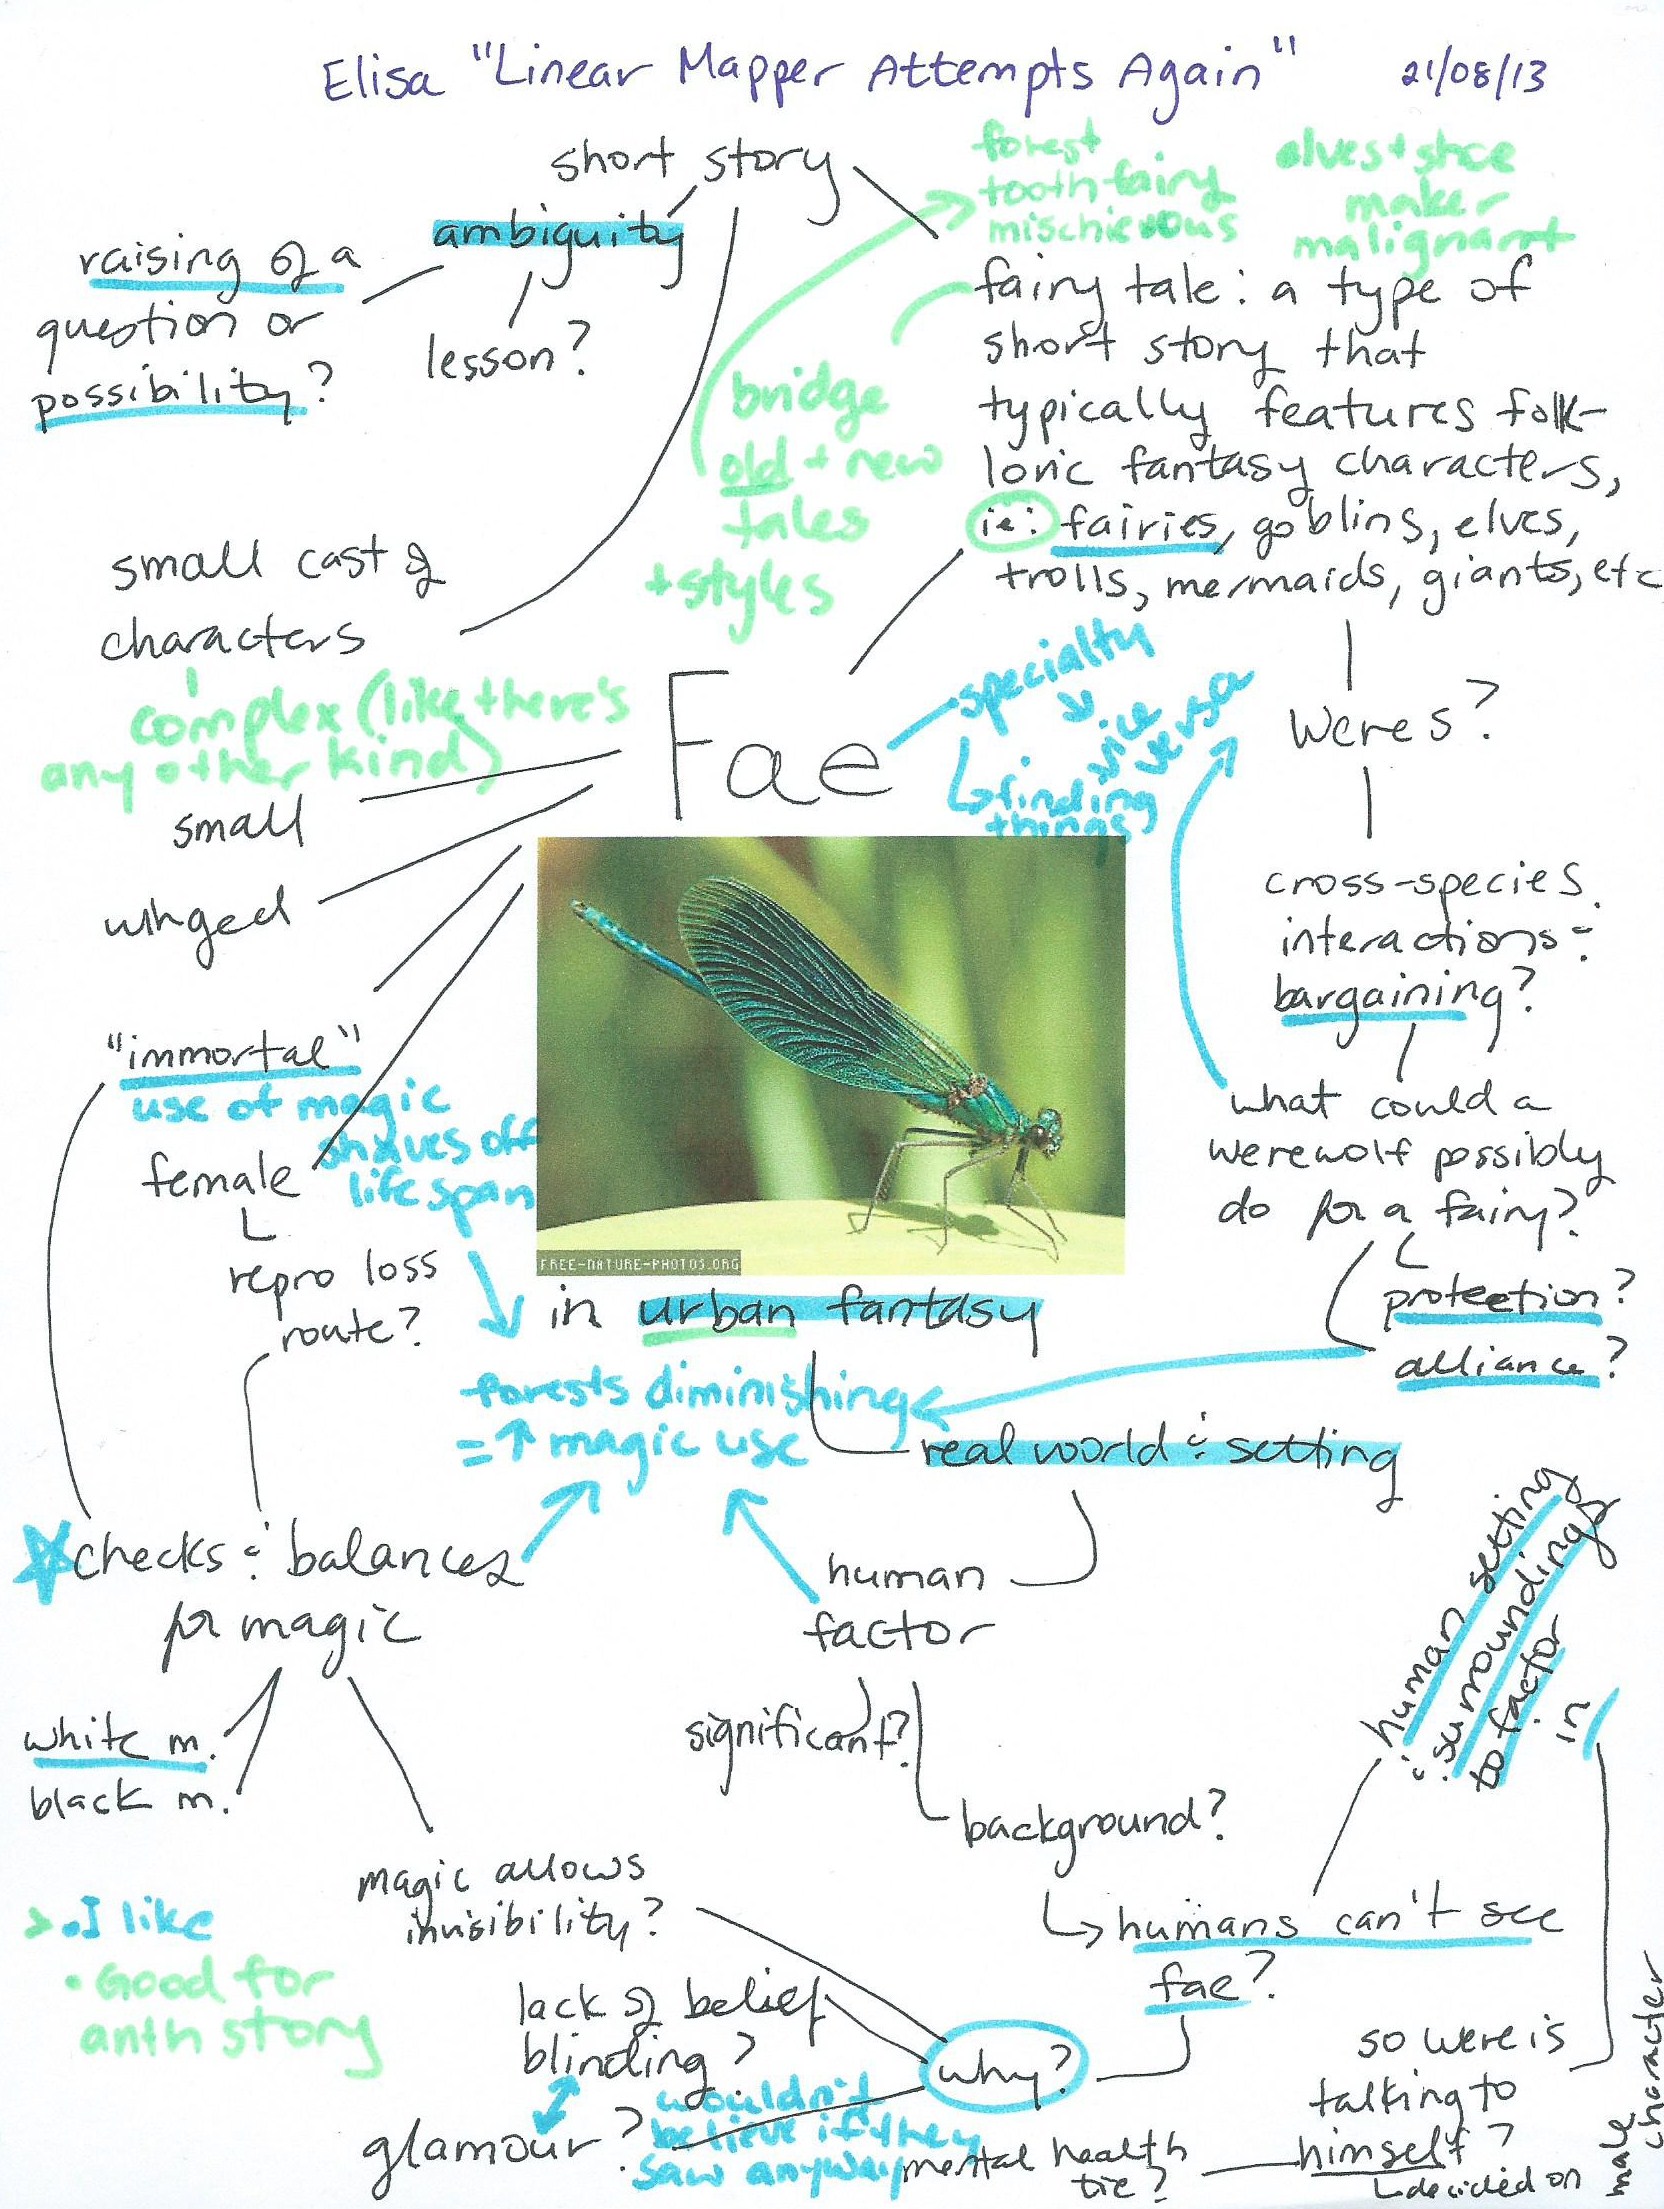 Elisa "Linear Mapper Attempts Again" 21/08/13
short story
ambiguity
raising of a
question or
possibility?
lesson?
forest
tooth fairy
mischievous
elves + shoe
maker
malignant
fairy tale: a type of
short story that
typically features folk-
loric fantasy characters,
ie: fairies, goblins, elves,
trolls, mermaids, giants, etc
bridge
old + new
tales
+ styles
small cast of
characters
complex (like there's
any other kind)
Fae
specialty
vice versa
finding
things
small
winged
"immortal"
use of magic
shaves off
life span
female
repro loss
route?
weres?
cross-species
interactions:
bargaining?
what could a
werewolf possibly
do for a fairy?
protection?
alliance?
FREE-NATURE-PHOTOS.ORG
in urban fantasy
forests diminishing
= ↑ magic use
real world & setting
checks & balances
for magic
white m.
black m.
human
factor
significant?
background?
human setting
& surroundings
to factor
in
magic allows
invisibility?
humans can't see
fae?
• I like
• Good for
anth story
lack of belief
blinding?
why?
glamour?
wouldn't
believe if they
saw anyway
mental health
tie?
so were is
talking to
himself?
decided on
male
character